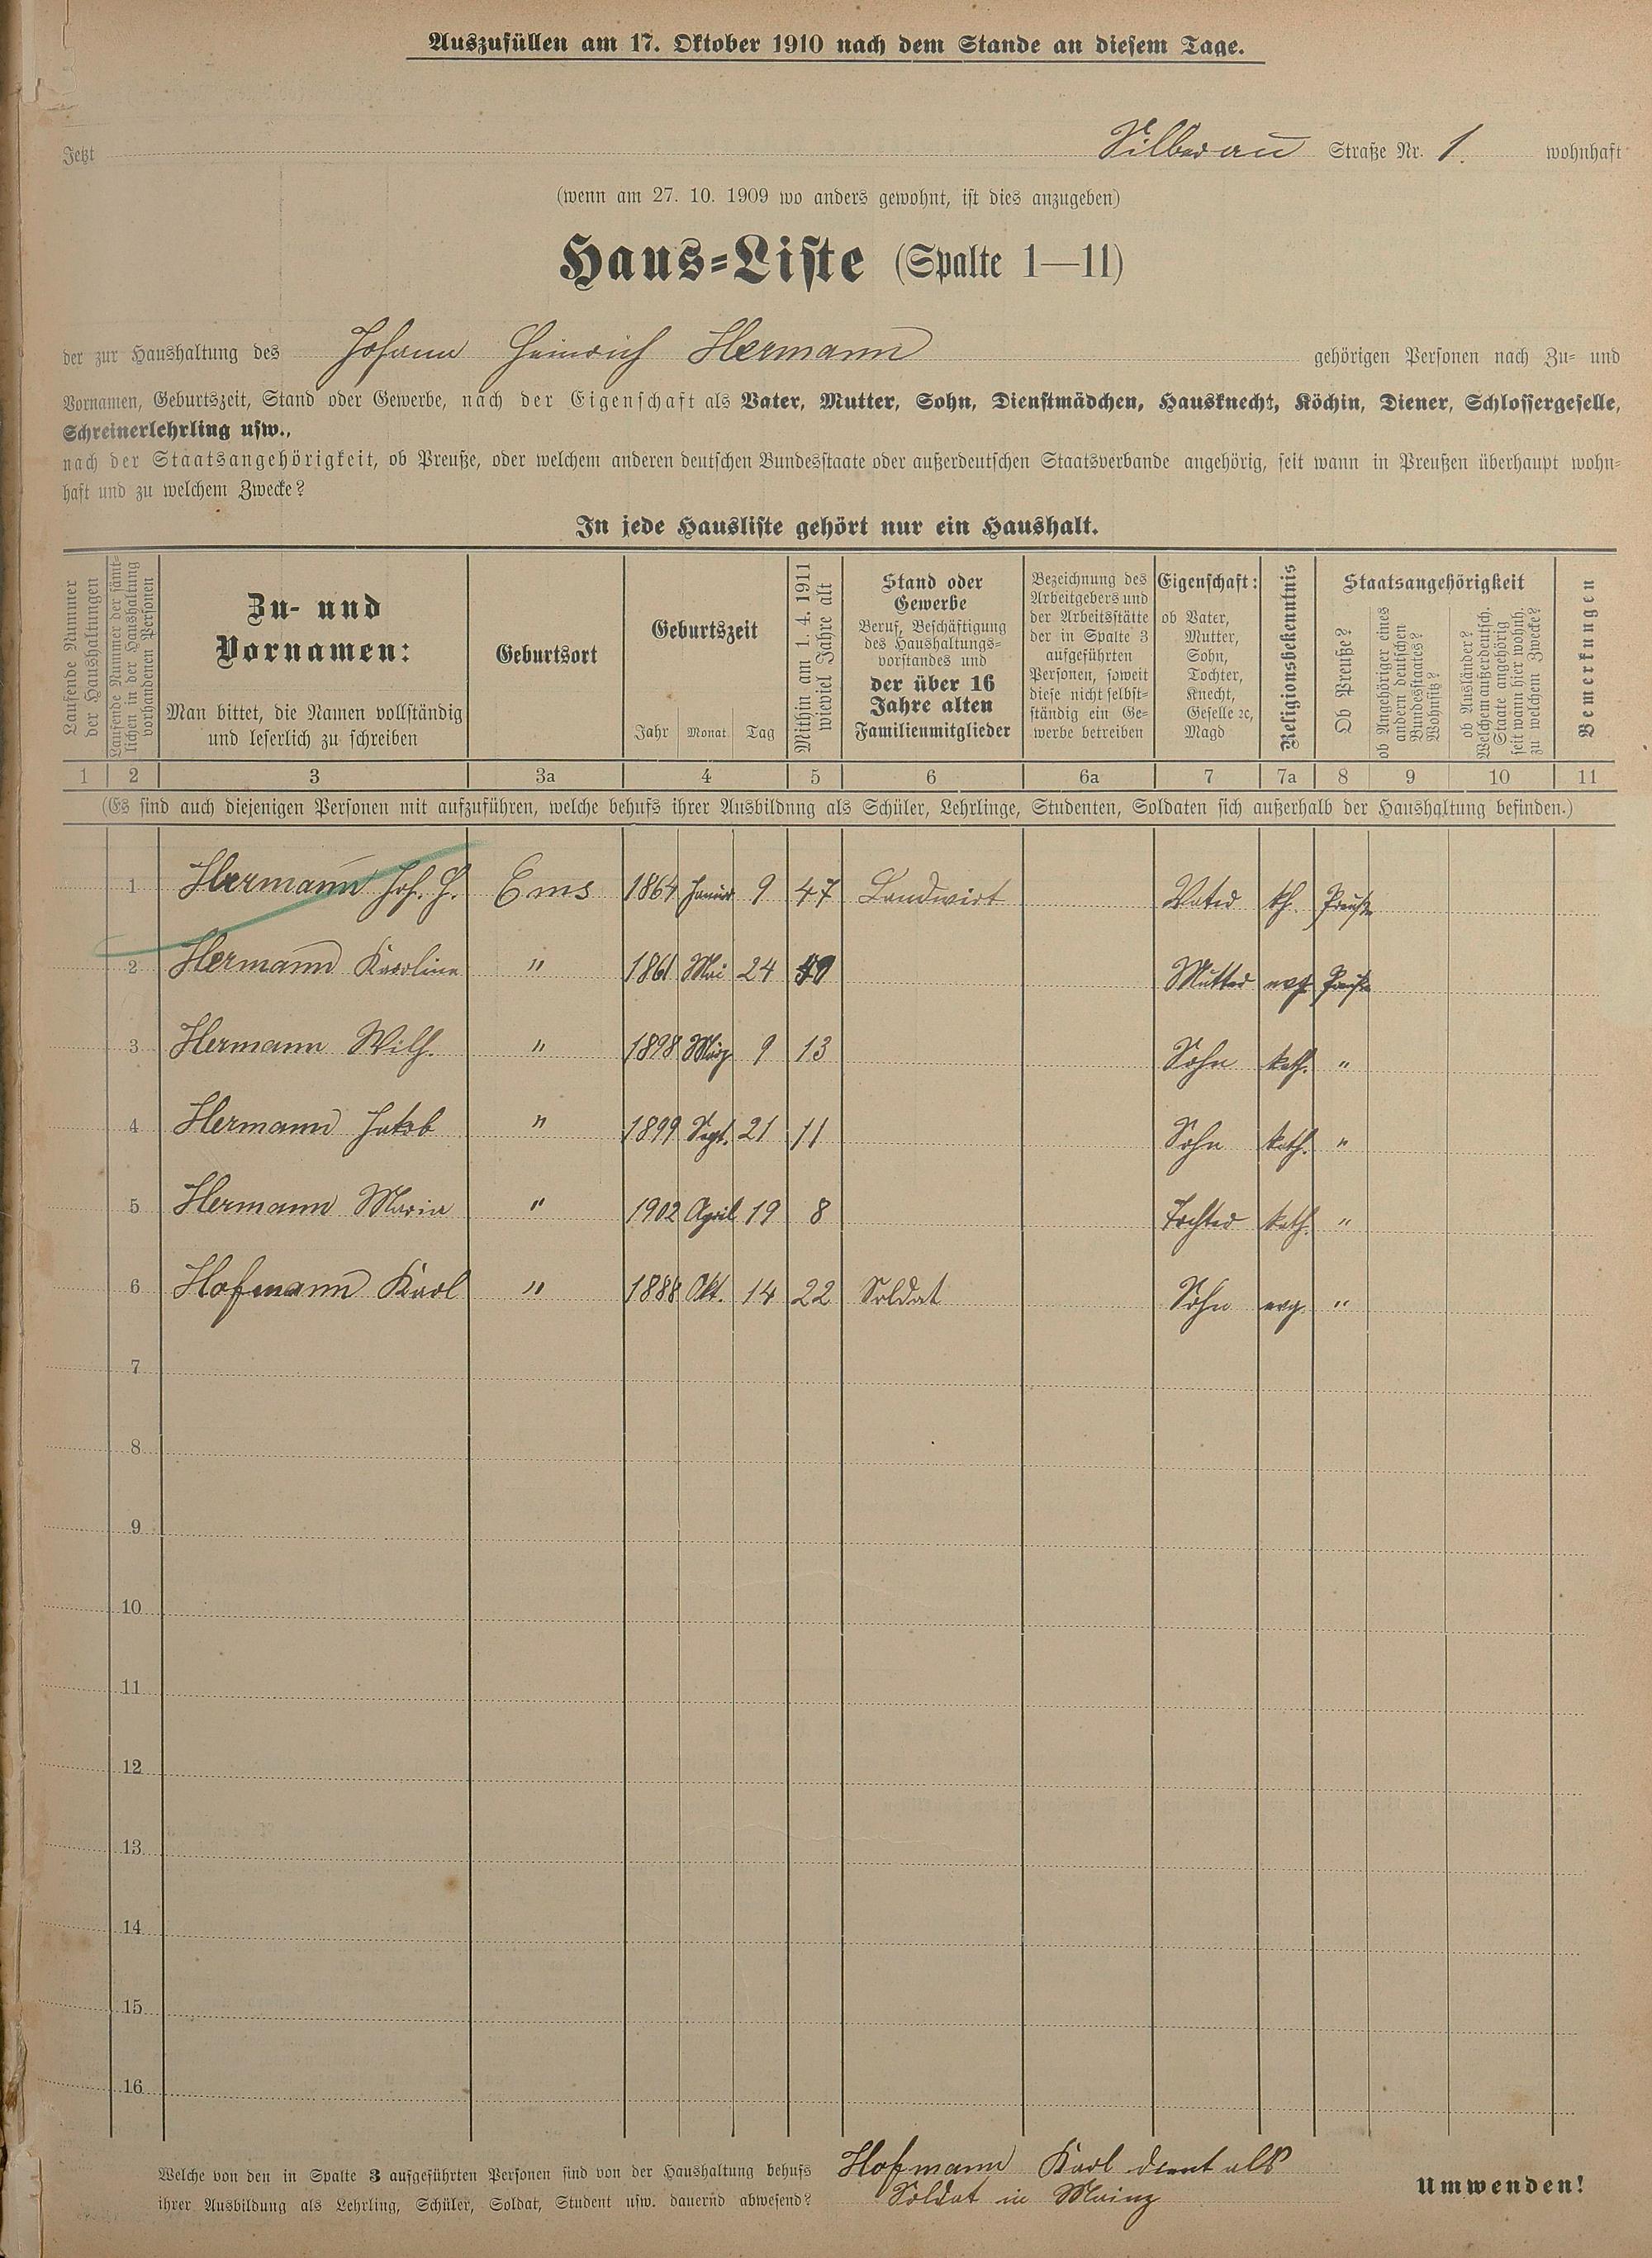 Auszufüllen am 17. Oktober 1910 nach dem Stande an diesem Tage.
Jetzt Silberau Straße Nr. 1. wohnhaft
(wenn am 27. 10. 1909 wo anders gewohnt, ist dies anzugeben)
Haus=Liste (Spalte 1—11)
der zur Haushaltung des Johann Heinrich Hermann gehörigen Personen nach Zu= und
Vornamen, Geburtszeit, Stand oder Gewerbe, nach der Eigenschaft als Vater, Mutter, Sohn, Dienstmädchen, Hausknecht, Köchin, Diener, Schlossergeselle,
Schreinerlehrling usw.,
nach der Staatsangehörigkeit, ob Preuße, oder welchem anderen deutschen Bundesstaate oder außerdeutschen Staatsverbande angehörig, seit wann in Preußen überhaupt wohn=
haft und zu welchem Zwecke?
In jede Hausliste gehört nur ein Haushalt.
Laufende Nummer
der Haushaltungen
Laufende Nummer der sämt=
lichen in der Haushaltung
vorhandenen Personen
Zu- und
Vornamen:
Man bittet, die Namen vollständig
und leserlich zu schreiben
Geburtsort
Geburtszeit
Jahr Monat Tag
Mithin am 1. 4. 1911
wieviel Jahre alt
Stand oder
Gewerbe
Beruf, Beschäftigung
des Haushaltungs=
vorstandes und
der über 16
Jahre alten
Familienmitglieder
Bezeichnung des
Arbeitgebers und
der Arbeitsstätte
der in Spalte 3
aufgeführten
Personen, soweit
diese nicht selbst=
ständig ein Ge=
werbe betreiben
Eigenschaft:
ob Vater,
Mutter,
Sohn,
Tochter,
Knecht,
Geselle ꝛc,
Magd
Religionsbekenntnis
Staatsangehörigkeit
Ob Preuße?
ob Angehöriger eines
andern deutschen
Bundesstaates?
Wohnsitz?
ob Ausländer?
Welchem außerdeutsch.
Staate angehörig
seit wann hier wohnh.
zu welchem Zwecke?
Bemerkungen
1 2 3 3a 4 5 6 6a 7 7a 8 9 10 11
(Es sind auch diejenigen Personen mit aufzuführen, welche behufs ihrer Ausbildnng als Schüler, Lehrlinge, Studenten, Soldaten sich außerhalb der Haushaltung befinden.)
1 Hermann Joh. H. Ems 1864 Januar 9 47 Landwirt Vater kh. Preuße
2 Hermann Karolina " 1861 Mai 24 Mutter evg Preuße
3 Hermann Wilh. " 1898 März 9 13 Sohn kath. "
4 Hermann Jakob " 1899 Sept. 21 11 Sohn kath. "
5 Hermann Maria " 1902 April 19 8 Tochter kath. "
6 Hofmann Karl " 1888 Okt. 14 22 Soldat Sohn evg. "
7
8
9
10
11
12
13
14
15
16
Welche von den in Spalte 3 aufgeführten Personen sind von der Haushaltung behufs Hofmann Karl dient als
ihrer Ausbildung als Lehrling, Schüler, Soldat, Student usw. dauernd abwesend? Soldat in Mainz
Umwenden!